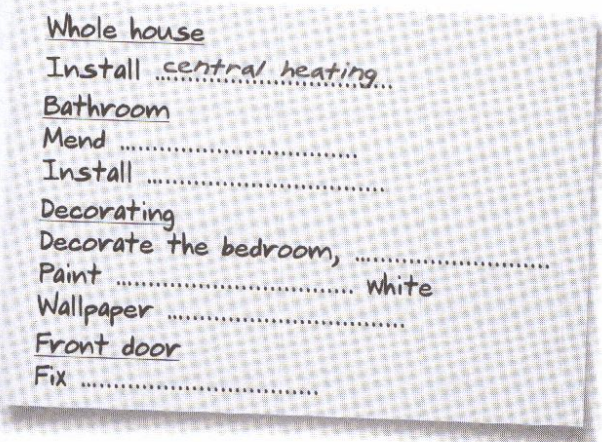 Whole house
Install central heating
Bathroom
Mend ........................................
Install ........................................
Decorating
Decorate the bedroom, ................................
Paint ........................................ white
Wallpaper ........................................
Front door
Fix ........................................